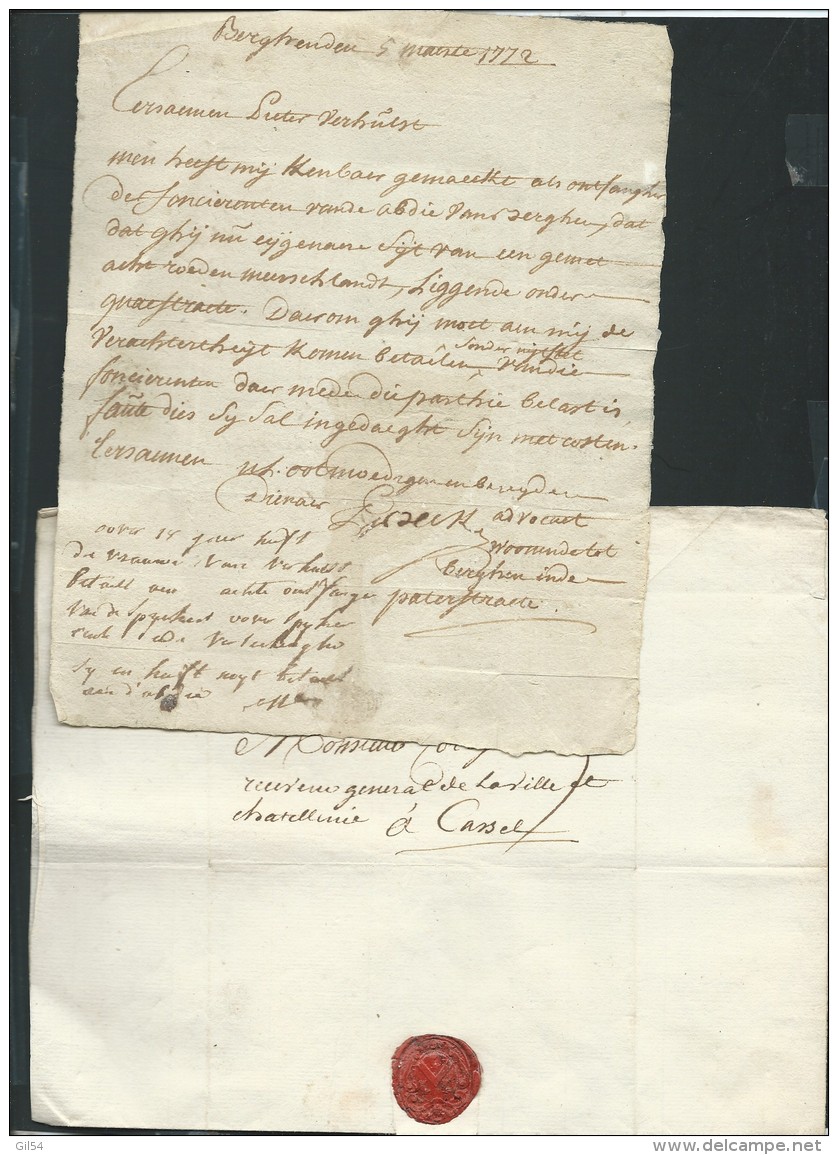 Berghen den 5 maerte 1772
Eersaemen Pieter Verhulst
men heeft mij Kenbaer gemaeckt als ontfangher
der foncierenten vande abdie van Berghen, dat
dat ghij nu eijgenaere sijt van een gemet
acht roeden meerschlandt, Liggende onder
quaestraete. Daerom ghij moet aen mij de
verachtertheijt komen betaelen, vandie
sonder uijtstel
foncierenten daer mede die parthie belast is
faute dies sy sal ingedaeght sijn met costen.
Eersaemen
ul. ootmoedigen en bereyden
Dienaer advocaet
woonende tot
Berghen inde
paterstraete.
over 14 jaer heeft
de vrauwe van verhulst
betaelt aen
van de over
sy en heeft noyt betaelt
aen d'abdie
Monsieur
receveur general de la ville et
chatellenie à Cassel
Gil54
delcampe.net